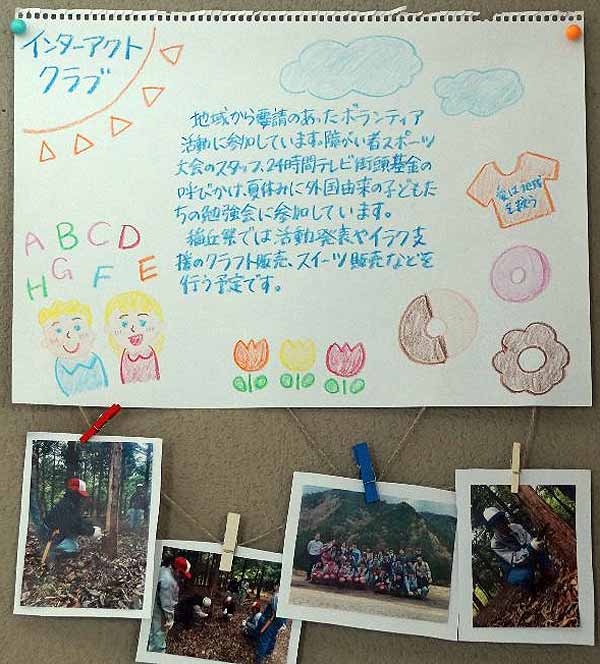 インターアクト
クラブ
地域から要請のあったボランティア
活動に参加しています。障がい者スポーツ
大会のスタッフ、24時間テレビ街頭基金の
呼びかけ、夏休みに外国由来の子どもた
ちの勉強会に参加しています。
稲丘祭では活動発表やイラク支
援のクラフト販売、スイーツ販売などを
行う予定です。
愛は地球
を救う
A B C D
H G F E